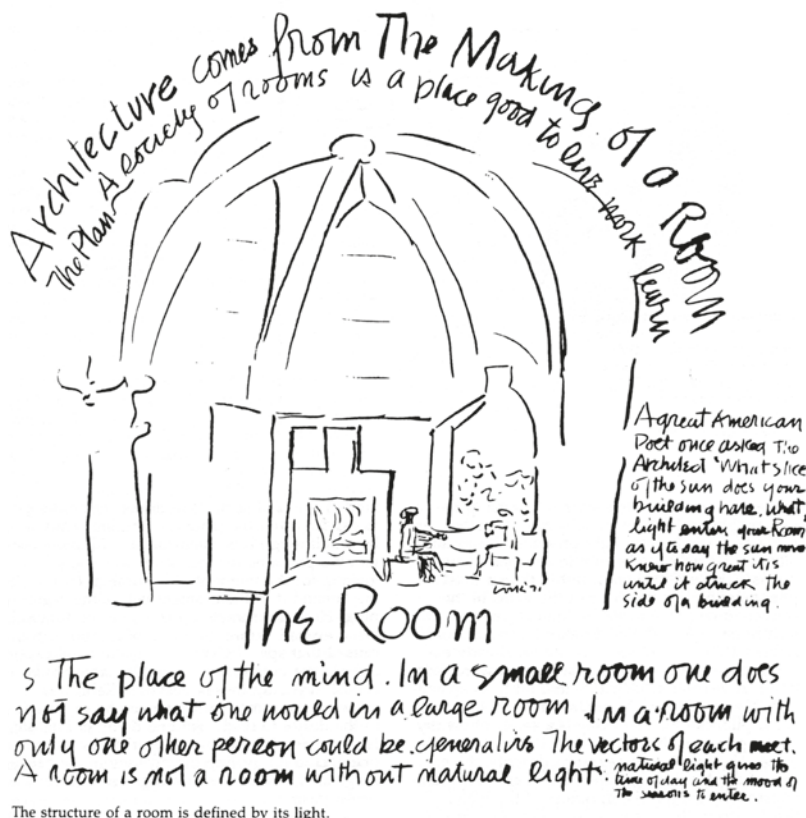 Architecture comes from The Making of a Room
The Plan A society of rooms is a place good to live work learn
A great American
Poet once asked the
Architect 'What slice
of the sun does your
building have, what
light enters your Room
as if to say the sun never
knew how great it is
until it struck the
side of a building.
The Room
s The place of the mind. In a small room one does
not say what one would in a large room In a room with
only one other person could be generative The vectors of each meet.
A room is not a room without natural light.
natural light gives the
time of day and the mood of
The seasons to enter.
The structure of a room is defined by its light.